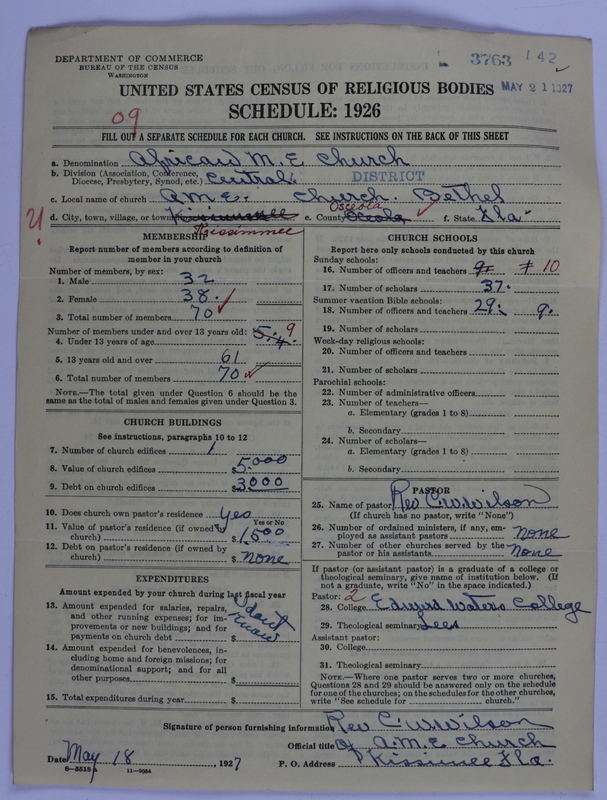 DEPARTMENT OF COMMERCE
BUREAU OF THE CENSUS
WASHINGTON
3763 142
MAY 21 1927
UNITED STATES CENSUS OF RELIGIOUS BODIES
SCHEDULE: 1926
09
FILL OUT A SEPARATE SCHEDULE FOR EACH CHURCH. SEE INSTRUCTIONS ON THE BACK OF THIS SHEET
a. Denomination African M. E. Church
b. Division (Association, Conference, Diocese, Presbytery, Synod, etc.) Central DISTRICT
c. Local name of church A.M.E. Church. Bethel
d. City, town, village, or town Kissimmee Kissimmee e. County Oceola Osceola f. State Fla
MEMBERSHIP
Report number of members according to definition of
member in your church
Number of members, by sex:
1. Male 32
2. Female 38.
3. Total number of members 70
Number of members under and over 13 years old:
4. Under 13 years of age 9
5. 13 years old and over 61
6. Total number of members 70
NOTE.—The total given under Question 6 should be
same as the total of males and females given under Question 3.
CHURCH BUILDINGS
See instructions, paragraphs 10 to 12
7. Number of church edifices 1
8. Value of church edifices $5.000
9. Debt on church edifices $3000
10. Does church own pastor's residence? Yes
Yes or No
11. Value of pastor's residence (if owned by
church) $1500
12. Debt on pastor's residence (if owned by
church) $ none
EXPENDITURES
Amount expended by church during last fiscal year
13. Amount expended for salaries, repairs,
and other running expenses; for im-
provements or new buildings; and for
payments on church debt $ I dont Know
14. Amount expended for benevolences, in-
cluding home and foreign missions; for
denominational support; and for all
other purposes $
15. Total expenditures during year $
CHURCH SCHOOLS
Report here only schools conducted by this church
Sunday schools:
16. Number of officers and teachers 9 10
17. Number of scholars 37.
Summer vacation Bible schools:
18. Number of officers and teachers 29. 9.
19. Number of scholars
Week-day religious schools:
20. Number of officers and teachers
21. Number of scholars
Parochial schools:
22. Number of administrative officers
23. Number of teachers—
a. Elementary (grades 1 to 8)
b. Secondary
24. Number of scholars—
a. Elementary (grades 1 to 8)
b. Secondary
PASTOR
25. Name of pastor Rev C. W. Wilson
(If church has no pastor, write "None")
26. Number of ordained ministers, if any, em-
ployed as assistant pastors none
27. Number of other churches served by the
pastor or his assistants none
If pastor (or assistant pastor) is a graduate of a college or
theological seminary, give name of institution below. (If
not a graduate, write "No" in the space indicated.)
Pastor: 2
28. College Edward Waters College
29. Theological seminary Lees
Assistant pastor:
30. College
31. Theological seminary
NOTE.—Where one pastor serves two or more churches,
Questions 28 and 29 should be answered only on the schedule
for one of the churches; on the schedules for the other churches,
write "See schedule for church."
Signature of person furnishing information Rev C. W. Wilson
Official title Of A.M.E. Church
Date May 18, 1927 P. O. Address Kissimee Fla.
8—5518a 11—9084